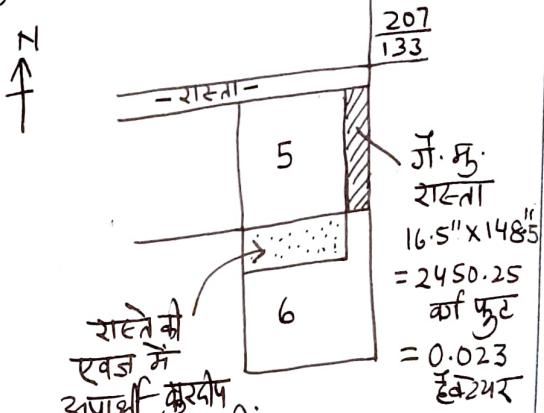 N
207
133
- रास्ता -
5
गै. मु.
रास्ता
16.5" x 148.5"
= 2450.25
वर्ग फुट
= 0.023
हैक्टेयर
6
रास्ते की
एवज में
अप्रार्थी कुरदीप